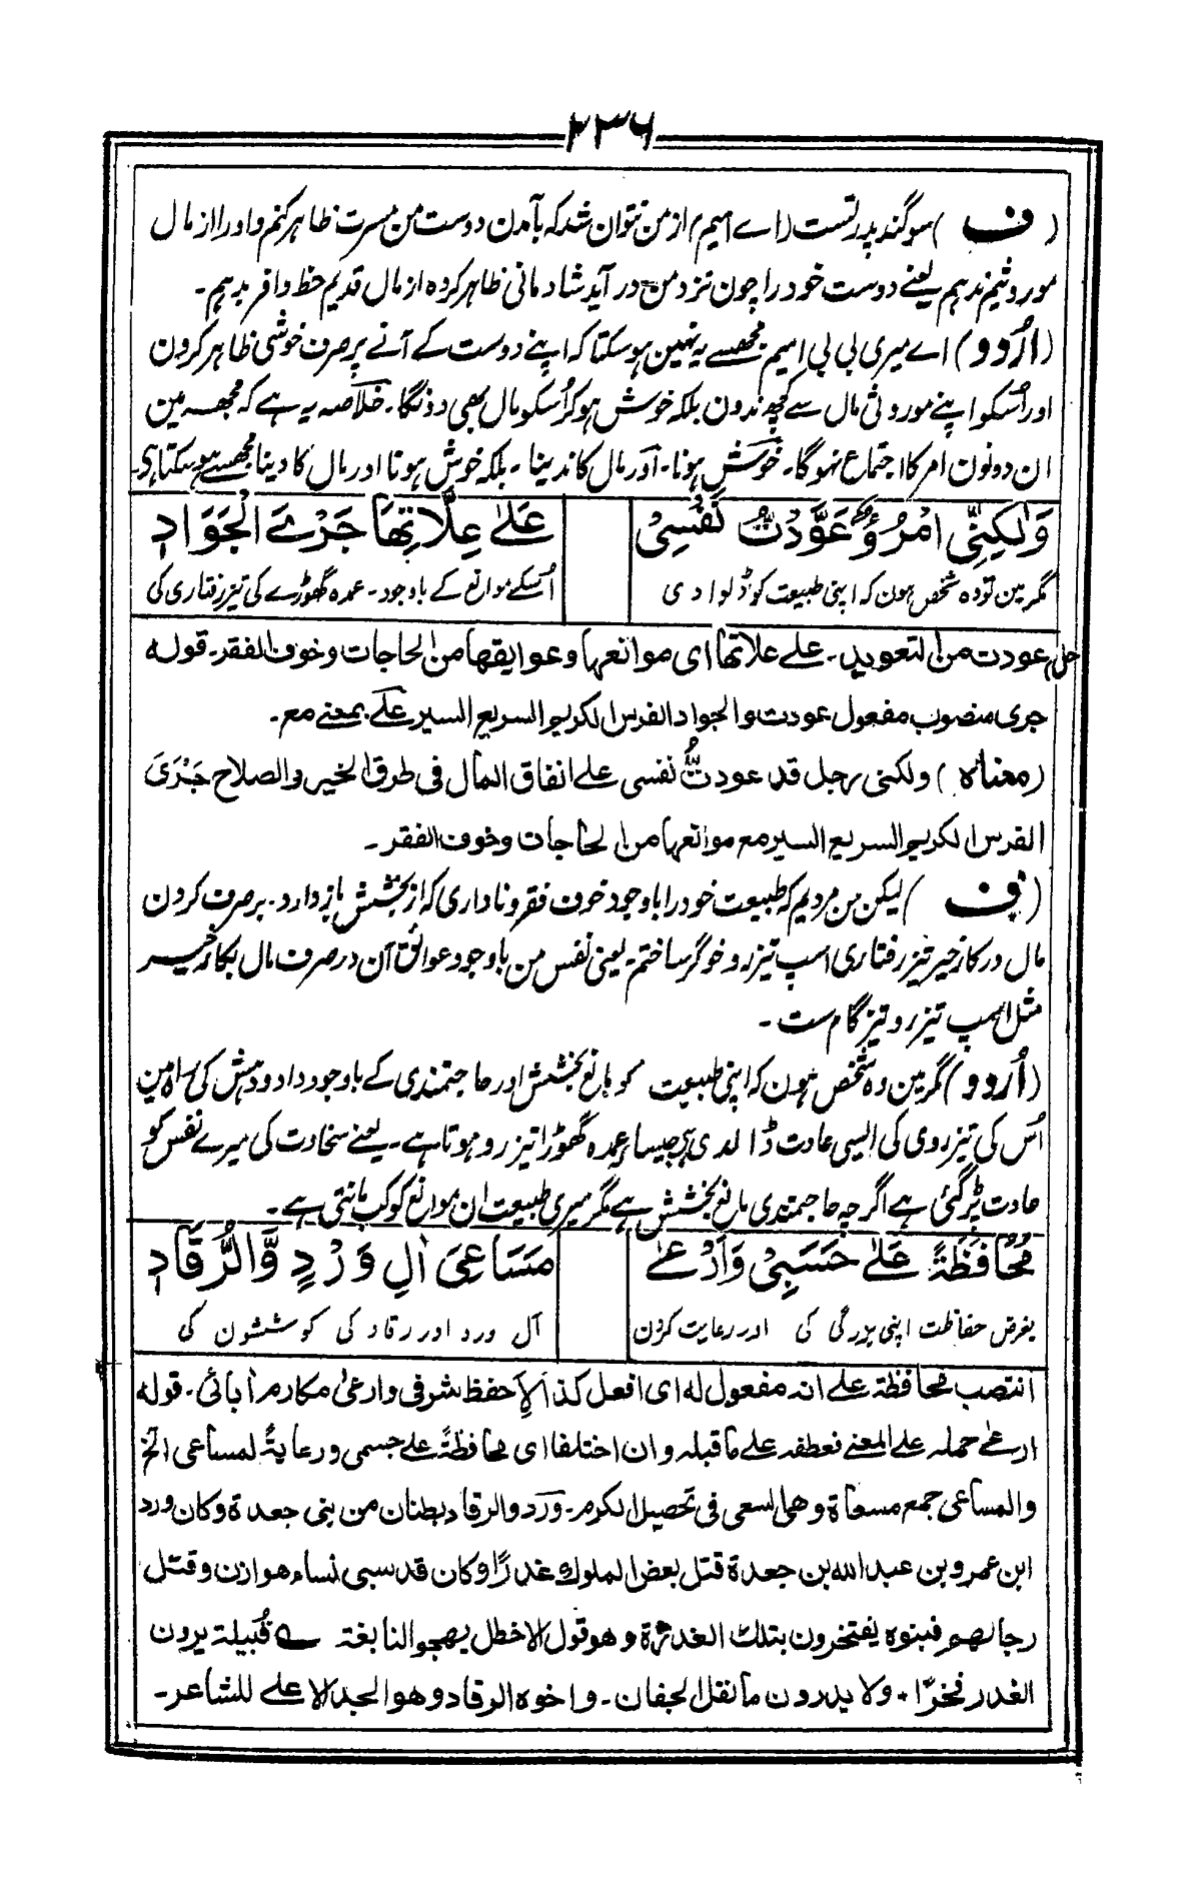 ۲۳۶
(ف) سوگند پدرتست (اے امیم) از من نتوان شد کہ بآمدن دوست من مسرت ظاہر کنم و اورا از مال
موروثیم ندہم یعنے دوست خود را چون نزد من در آید شادمانی ظاہر کردہ از مال قدیم حظ وافر بدہم۔
(اُردو) اے میری بی بی امیم مجھسے یہ نہین ہو سکتا کہ اپنے دوست کے آنے پر صرف خوشی ظاہر کرون
اور اُسکو اپنے موروثی مال سے کچھ ندون بلکہ خوش ہو کر اُسکو مال بھی دونگا۔ خلاصہ یہ ہے کہ مجھسہ مین
ان دونون امر کا اجتماع نہوگا۔ خوش ہونا۔ اور مال کا ندینا۔ بلکہ خوش ہونا اور مال کا دینا مجھسے ہو سکتا ہی
وَلٰکِنِّی امْرُؤٌ عَوَّدْتُ نَفْسِیْ
عَلٰے عِلَّاتِھَا جَرْیَ الْجَوَادِ
مگر مین تو وہ شخص ہون کہ اپنی طبیعت کو ڈلوا دی
اُسکے موانع کے باوجود۔ عمدہ گھوڑے کی تیز رفتاری کی
حل عودت من التعوید۔ علے علاتھا ای موانعہا وعوایقھا من الحاجات وخوف الفقر۔ قولہ
جری منصوب مفعول عودت والجواد الفرس الکریم السریع السیر علے بمعنے مع۔
(معناہ) ولکنی رجل قد عودتُّ نفسی علے انفاق المال فی طرق الخیر والصلاح جَرْیَ
الفرس الکریم السریع السیر مع موانعہا من الحاجات وخوف الفقر۔
(ف) لیکن من مردیم کہ طبیعت خود را باوجود خوف فقر و ناداری کہ از بخشش باز دارد۔ بر صرف کردن
مال در کار خیر تیز رفتاری اسپ تیز رو خوگر ساختم۔ یعنی نفس من باوجود عوائق آن در صرف مال بکار خیر
مثل اسپ تیز رو تیز گام ست۔
(اُردو) مگر مین وہ شخص ہون کہ اپنی طبیعت کو مانع بخشش اور حاجتمندی کے باوجود داد و دہش کی راہ مین
اُس کی تیز روی کی ایسی عادت ڈالدی ہی جیسا عمدہ گھوڑا تیز رو ہوتا ہے۔ یعنے سخاوت کی میرے نفس کو
عادت پڑگئی ہے اگرچہ حاجتمندی مانع بخشش ہے مگر میری طبیعت ان موانع کو کب مانتی ہے۔
مُحَافَظَةً عَلٰے حَسَبِیْ وَاَرْعٰے
مَسَاعِیَ اٰلِ وَرْدٍ وَّالرُّقَادِ
بغرض حفاظت اپنی بزرگی کی اور رعایت کرون
آل ورد اور رقاد کی کوششون کی
انتصب محافظة علے انہ مفعول لہ ای افعل کذا لِاَحفظ شرفی وارعی مکارم اٰبائی۔ قولہ
ارعٰے حملہ علے المعنے نعطفہ علے ماقبلہ وان اختلفا ای محافظةً علے حسبی ورعایةً لمساعی الخ
والمساعی جمع مسعاة وھی السعی فی تحصیل الکرم۔ ورد والرقاد بطنان من بنی جعدة وکان ورد
ابن عمرو بن عبداللہ بن جعدة قتل بعض الملوک غدرًا وکان قد سبی نساء ھوازن وقتل
رجالھم فبنوہ یفتخرون بتلک الغدرة وھو قول الاخطل یھجو النابغة ے قُبیلة یرون
الغدر فخرًا ٭ ولا یدرون مانقل الجفان۔ واخوہ الرقاد وھو الجد الاعلے للشاعر۔